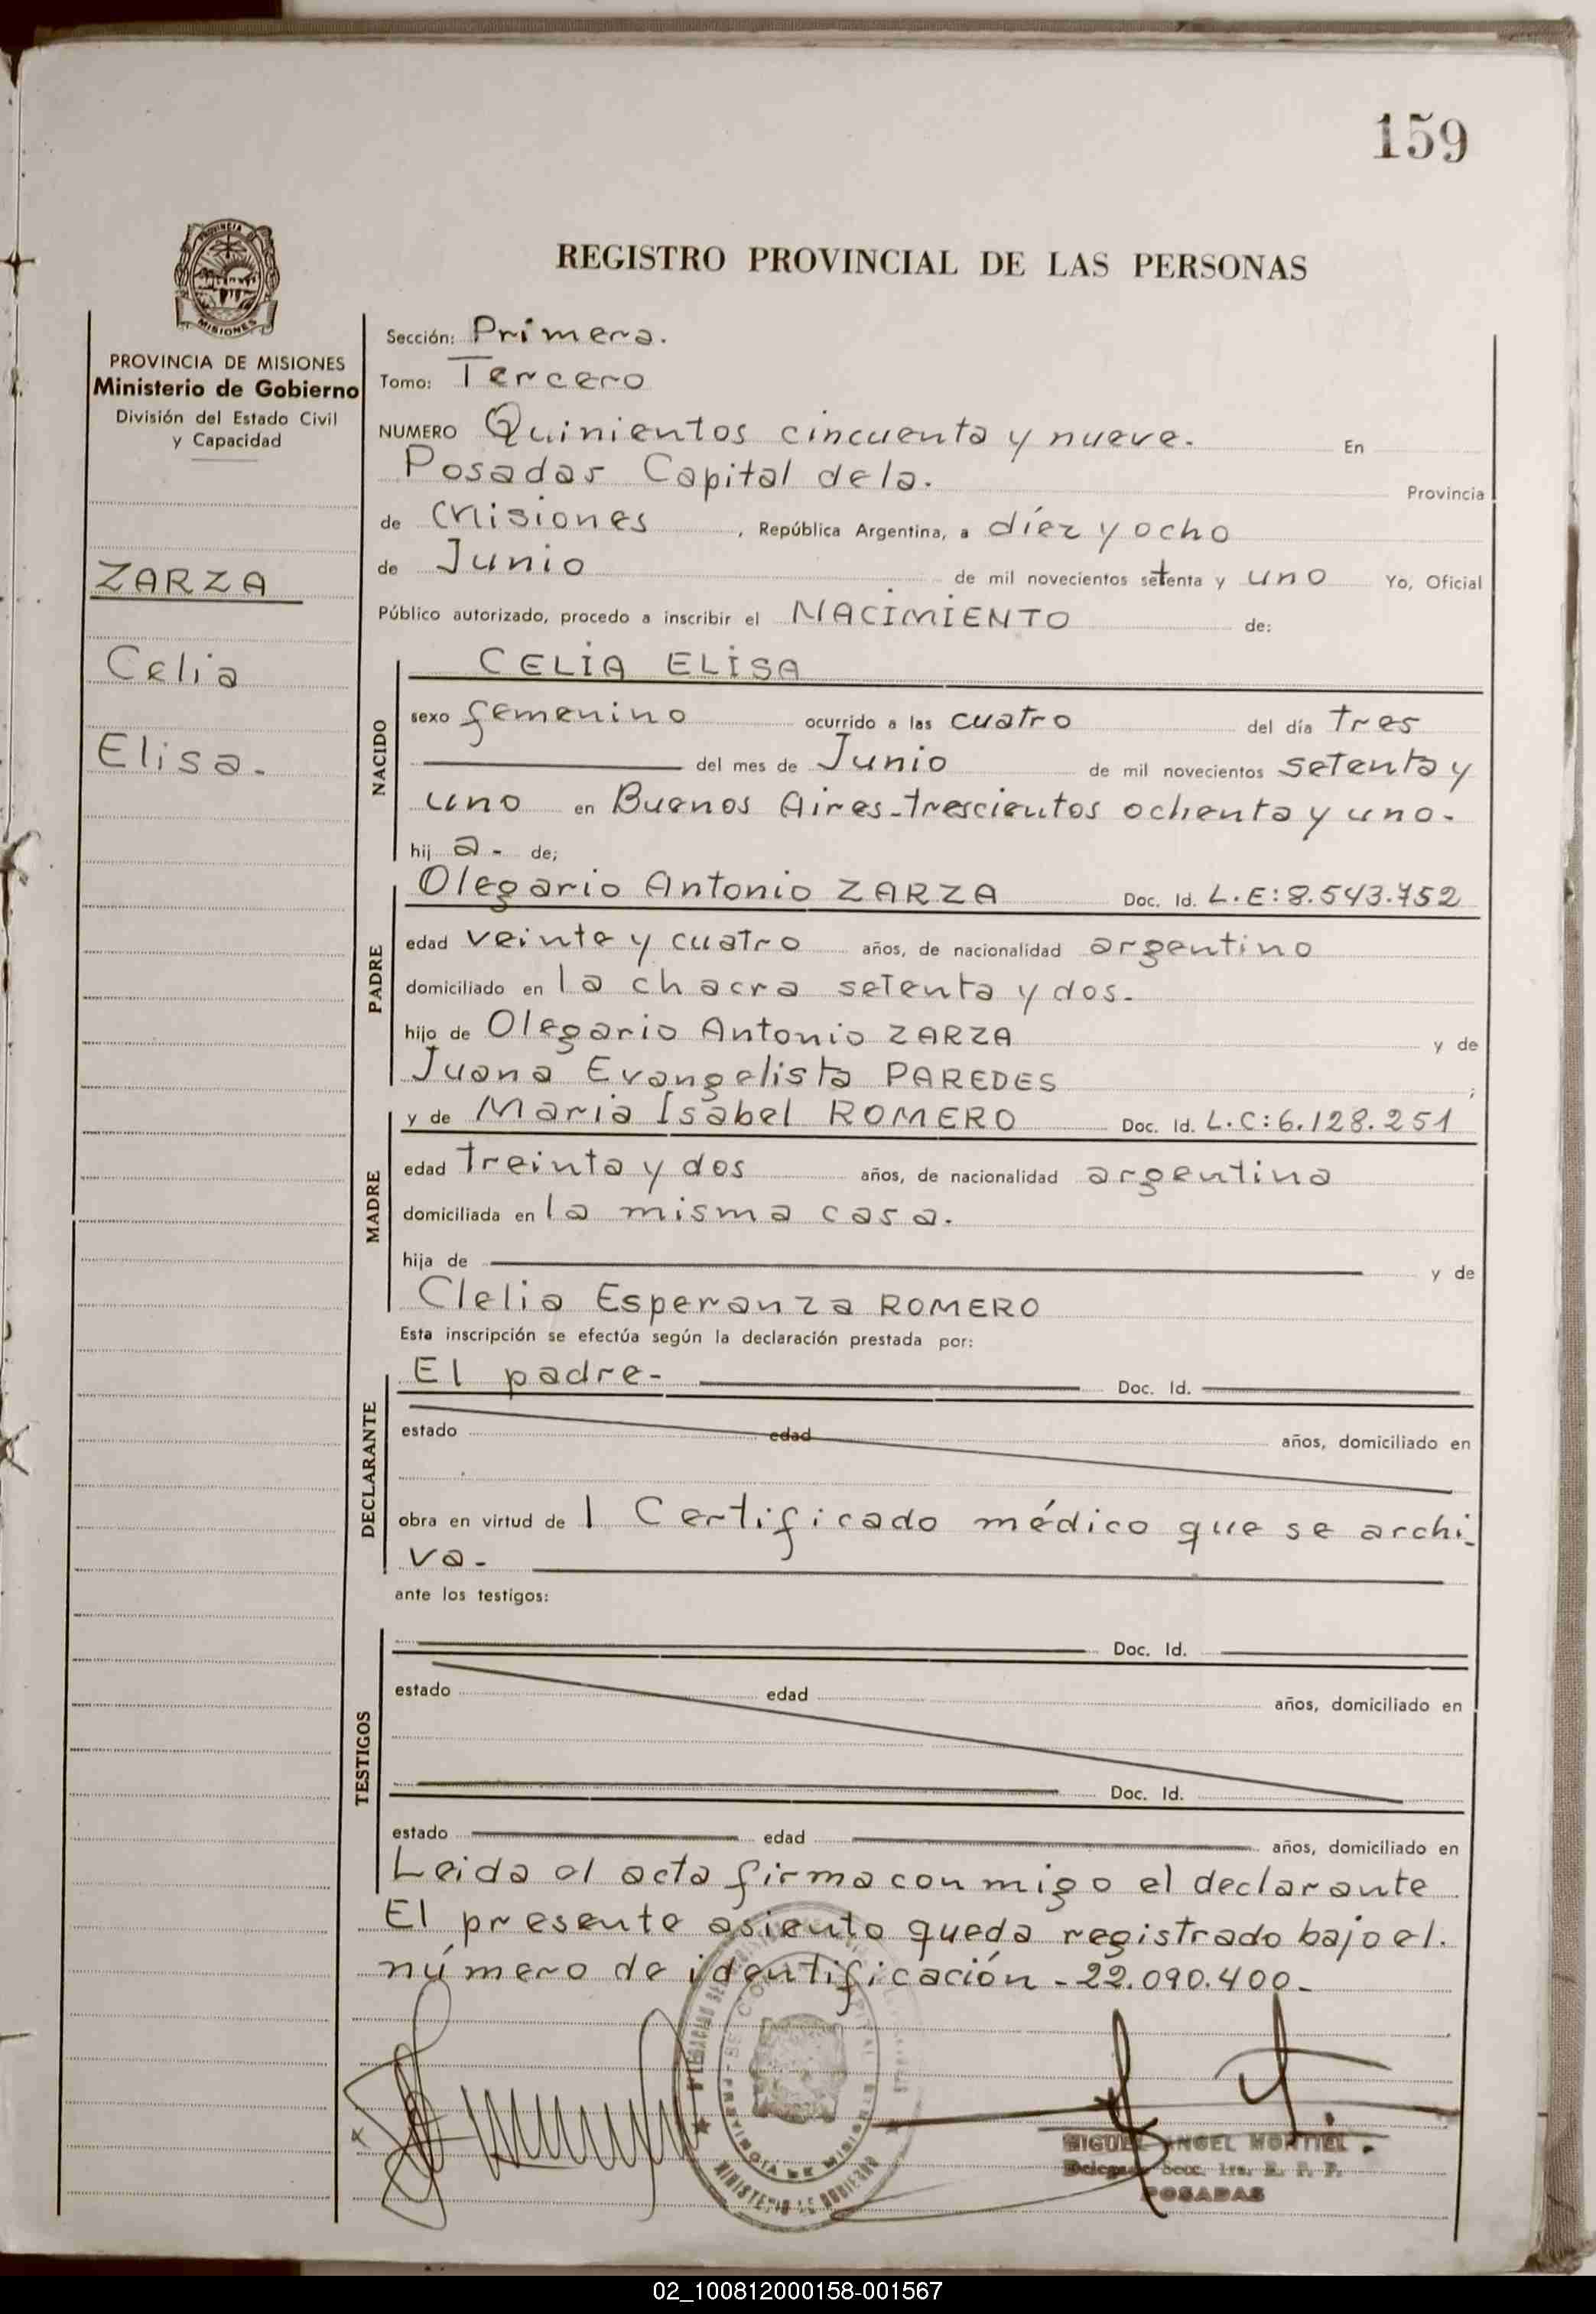 159
REGISTRO PROVINCIAL DE LAS PERSONAS
PROVINCIA DE
MISIONES
PROVINCIA DE MISIONES
Ministerio de Gobierno
División del Estado Civil
y Capacidad
ZARZA
Celia
Elisa.
Sección: Primera.
Tomo: Tercero
NUMERO Quinientos cincuenta y nueve. En
Posadas Capital de la. Provincia
de Misiones, República Argentina, a díez y ocho
de Junio de mil novecientos setenta y uno Yo, Oficial
Público autorizado, procedo a inscribir el NACIMIENTO de:
NACIDO
CELIA ELISA
sexo femenino ocurrido a las cuatro del día tres
del mes de Junio de mil novecientos setenta y
uno en Buenos Aires-trescientos ochenta y uno.
hij a- de;
PADRE
Olegario Antonio ZARZA Doc. Id. L.E:8.543.752
edad veinte y cuatro años, de nacionalidad argentino
domiciliado en la chacra setenta y dos.
hijo de Olegario Antonio ZARZA y de
Juana Evangelista PAREDES ;
MADRE
y de Maria Isabel ROMERO Doc. Id. L.C:6.128.251
edad treinta y dos años, de nacionalidad argentina
domiciliada en la misma casa.
hija de y de
Clelia Esperanza ROMERO
Esta inscripción se efectúa según la declaración prestada por:
DECLARANTE
El padre- Doc. Id.
estado edad años, domiciliado en
obra en virtud de 1 Certificado médico que se archi-
va-
ante los testigos:
TESTIGOS
Doc. Id.
estado edad años, domiciliado en
Doc. Id.
estado edad años, domiciliado en
Leida el acta firma conmigo el declarante
El presente asiento queda registrado bajo el.
número de identificación - 22.090.400-
PROVINCIA DE MISIONES
MINISTERIO DE GOBIERNO
MIGUEL ANGEL MONTIEL
Delegado Secc. 1ra. R. P. P.
POSADAS
02_100812000158-001567